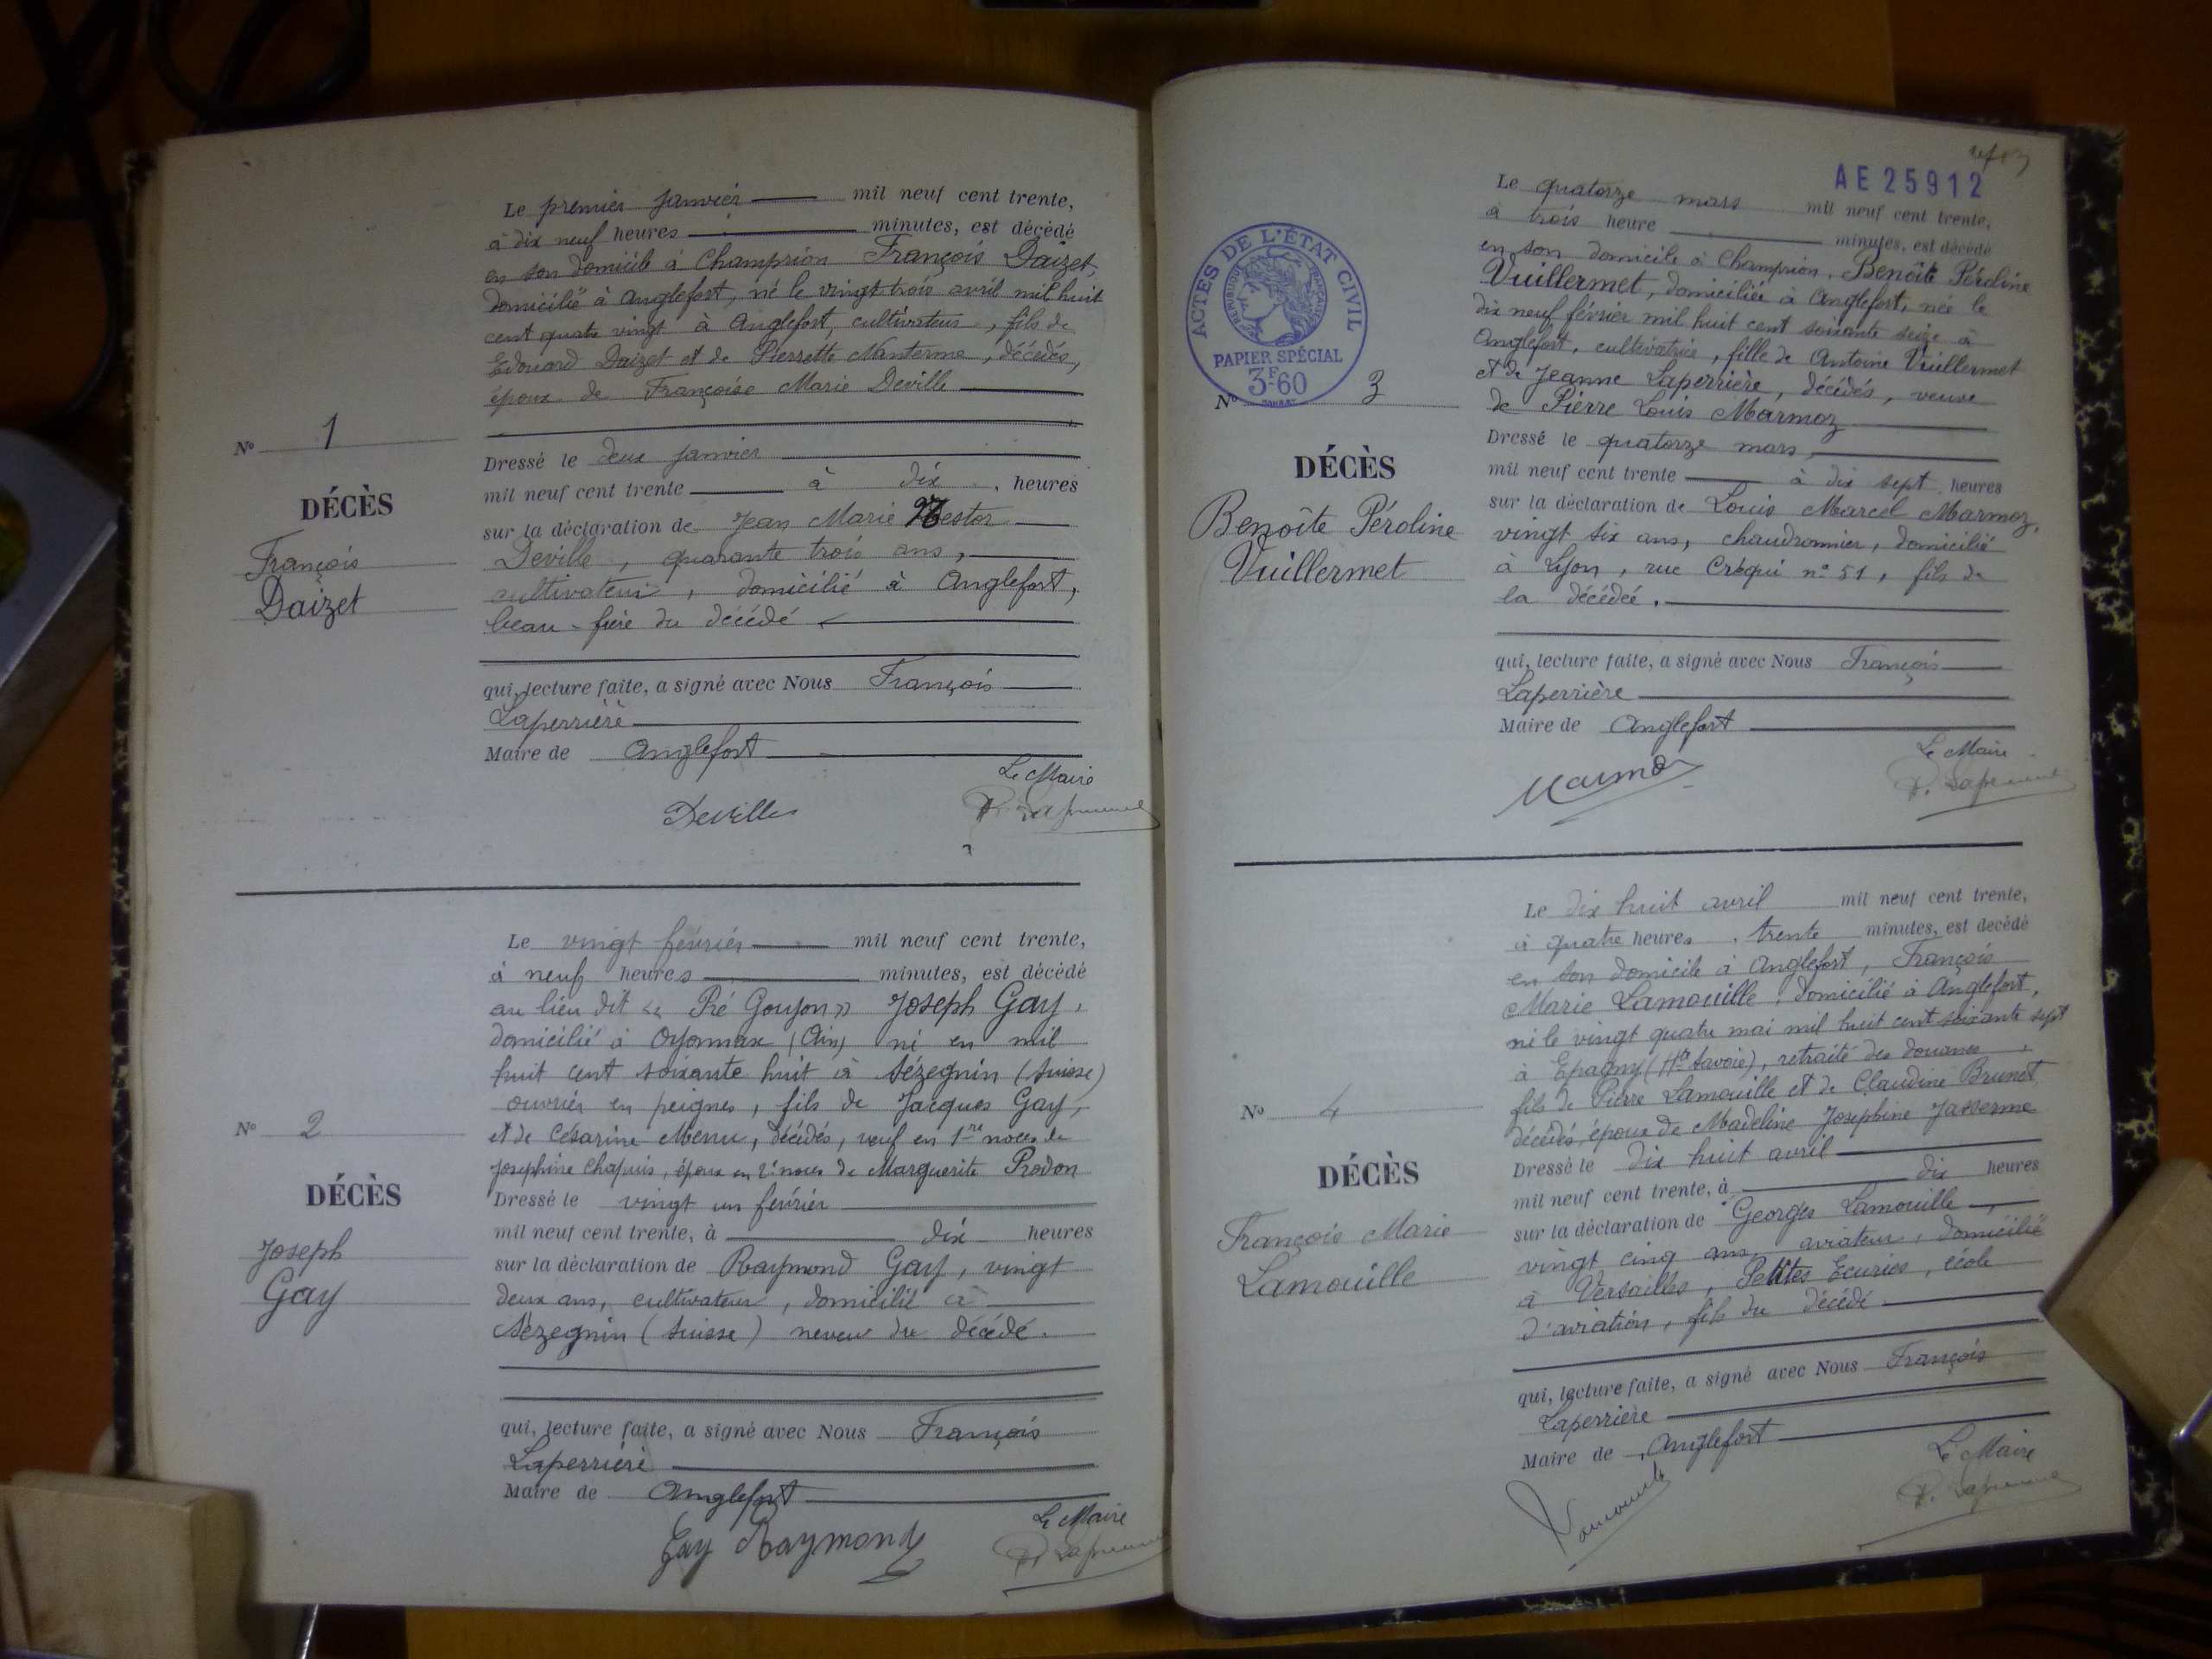 Le premier janvier mil neuf cent trente,
à dix neuf heures minutes, est décédé
en son domicile à Champrion François Daizet,
domicilié à Anglefort, né le vingt trois avril mil huit
cent quatre vingt à Anglefort, cultivateur, fils de
Edouard Daizet et de Pierrette Nanterme, décédés,
époux de Françoise Marie Deville
Nº 1
DÉCÈS
François
Daizet
Dressé le deux janvier
mil neuf cent trente à dix heures
sur la déclaration de Jean Marie Nestor
Deville, quarante trois ans,
cultivateur, domicilié à Anglefort,
beau-frère du décédé
qui, lecture faite, a signé avec Nous François
Laperrière
Maire de Anglefort
Le Maire
Deville
Le vingt février mil neuf cent trente,
à neuf heures minutes, est décédé
au lieu dit « Pré Goujon » Joseph Gay,
domicilié à Oyonnax (Ain) né en mil
huit cent soixante huit à Sézegnin (Suisse)
ouvrier en peignes, fils de Jacques Gay,
et de Césarine Menu, décédés, veuf en 1re noces de
Josephine Chapuis, époux en 2e noces de Marguerite Prodon
Nº 2
DÉCÈS
Joseph
Gay
Dressé le vingt un février
mil neuf cent trente, à dix heures
sur la déclaration de Raymond Gay, vingt
deux ans, cultivateur, domicilié à
Sézegnin (Suisse) neveu du décédé.
qui, lecture faite, a signé avec Nous François
Laperrière
Maire de Anglefort
Le Maire
Gay Raymond
AE 25912
ACTES DE L'ÉTAT CIVIL
RÉPUBLIQUE FRANÇAISE
PAPIER SPÉCIAL
3F60
Le quatorze mars mil neuf cent trente,
à trois heure minutes, est décédé
en son domicile à Champrion, Benoîte Péroline
Vuillermet, domiciliée à Anglefort, née le
dix neuf février mil huit cent soixante seize à
Anglefort, cultivatrice, fille de Antoine Vuillermet
et de Jeanne Laperrière, décédés, veuve
de Pierre Louis Marmoz
Nº 3
DÉCÈS
Benoîte Péroline
Vuillermet
Dressé le quatorze mars,
mil neuf cent trente à dix sept heures
sur la déclaration de Louis Marcel Marmoz,
vingt six ans, chaudronnier, domicilié
à Lyon, rue Créqui nº 51, fils de
la décédée.
qui, lecture faite, a signé avec Nous François
Laperrière
Maire de Anglefort
Le Maire
Marmoz
Le dix huit avril mil neuf cent trente,
à quatre heures trente minutes, est décédé
en son domicile à Anglefort, François
Marie Lamouille, domicilié à Anglefort,
né le vingt quatre mai mil huit cent soixante sept
à Epagny (Hte Savoie), retraité des douanes,
fils de Pierre Lamouille et de Claudine Brunet
décédés, époux de Madeline Josephine Jasserme
Nº 4
DÉCÈS
François Marie
Lamouille
Dressé le dix huit avril
mil neuf cent trente, à dix heures
sur la déclaration de Georges Lamouille,
vingt cinq ans, aviateur, domicilié
à Versailles, Petites Ecuries, école
d'aviation, fils du décédé
qui, lecture faite, a signé avec Nous François
Laperrière
Maire de Anglefort
Le Maire